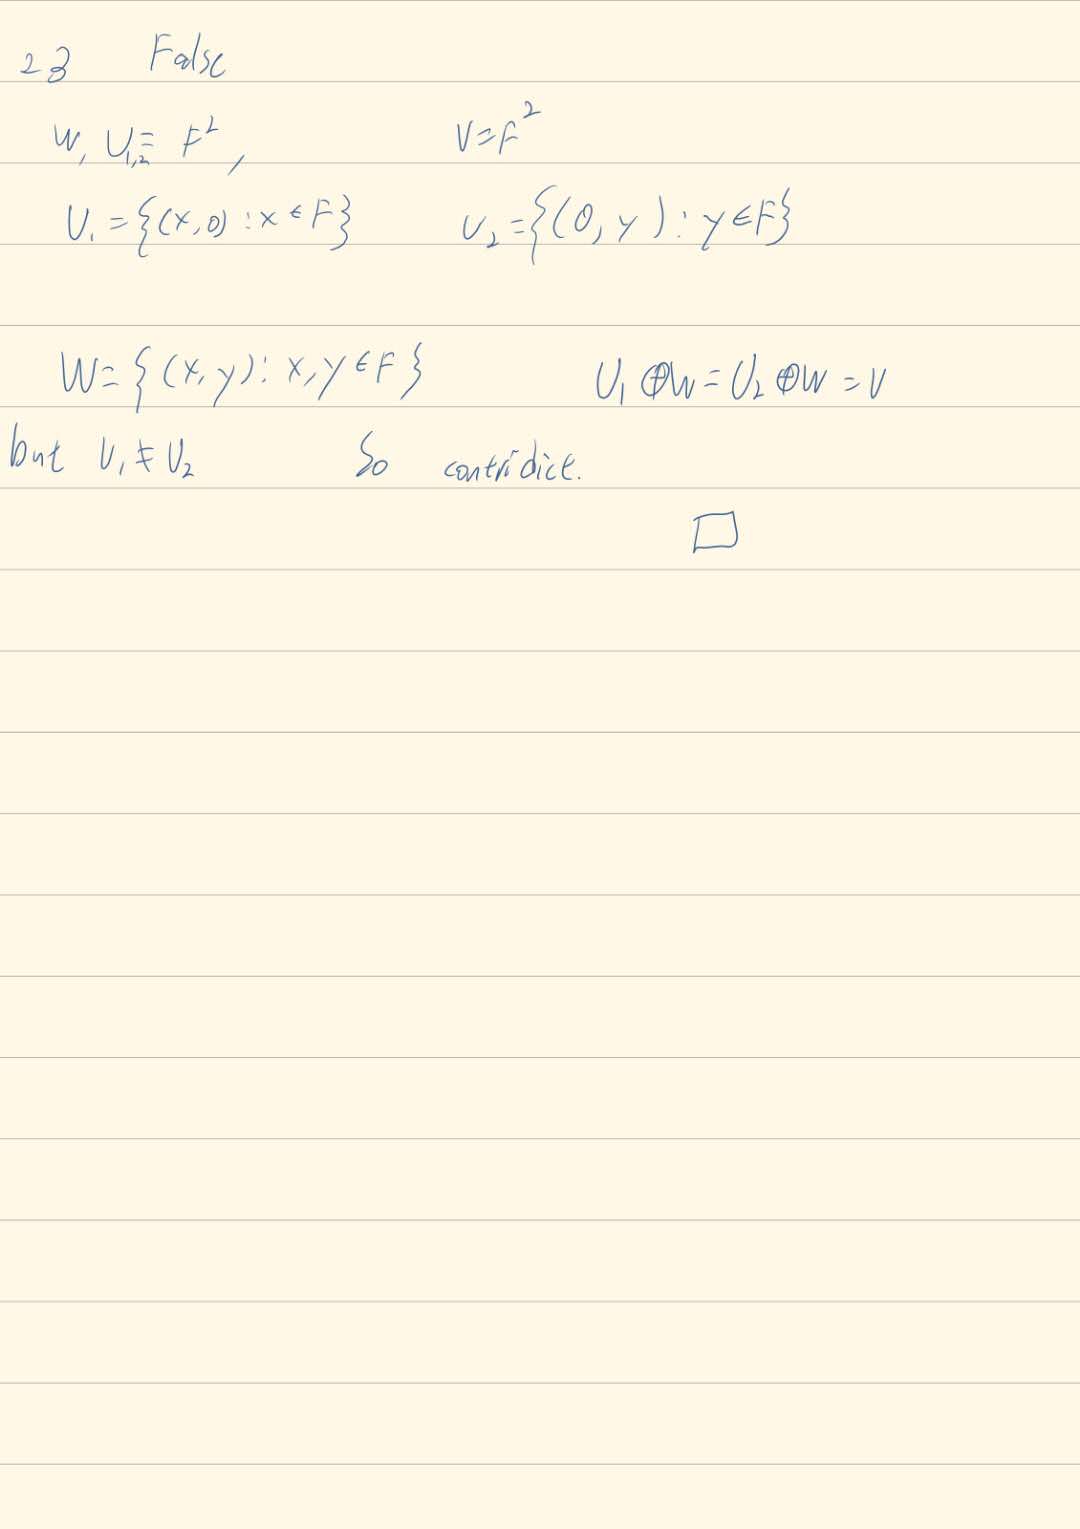 23 False
W, U₁,₂ = F², V=F²
U₁ = {(x,0) : x ∈ F} U₂ = {(0, y) : y ∈ F}
W = {(x, y) : x, y ∈ F} U₁ ⊕ W = U₂ ⊕ W = V
but U₁ ≠ U₂ So contridict.
□